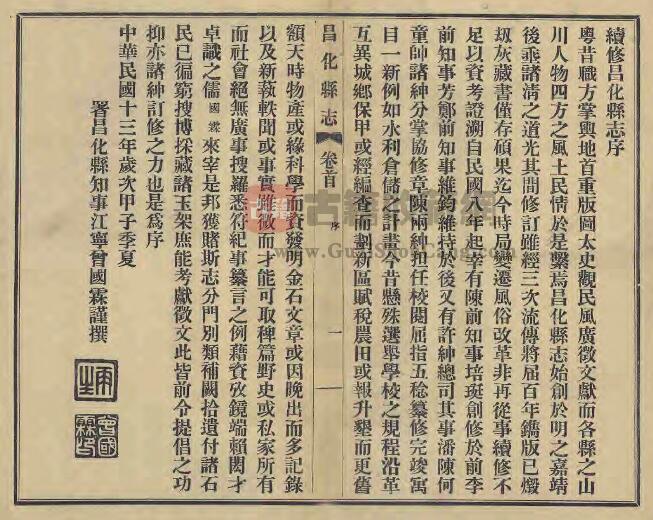 續修昌化縣志序
粵昔職方掌輿地首重版圖太史觀民風廣徵文獻而各縣之山
川人物四方之風土民情於是繫焉昌化縣志始創於明之嘉靖
後乘諸清之道光其間修訂雖經三次流傳將屆百年鐫版已燬
刼灰藏書僅存碩果迄今時局變遷風俗改革非再從事續修不
足以資考證溯自民國八年起幸有陳前知事培珽創修於前李
前知事芳鄭前知事維鈞維持於後又有許紳總司其事潘陳何
童帥諸紳分掌協修章陳兩紳担任校閱屈指五稔纂修完竣寓
目一新例如水利倉儲之計畫今昔懸殊選舉學校之規程沿革
互異城鄉保甲或經編查而劃新區賦稅農田或報升墾而更舊
昌化縣志 卷首 序 一
額天時物產或緣科學而資發明金石文章或因晚出而多記錄
以及新執軼聞或事實雖微而才能可取稗篇野史或私家所有
而社會絕無廣事搜羅悉符紀事纂言之例藉資攷鏡端賴閎才
卓識之儒國霖來宰是邦獲賭斯志分門別類補闕拾遺付諸石
民已徧窮搜博採藏諸玉架庶能考獻徵文此皆前令提倡之功
抑亦諸紳訂修之力也是爲序
中華民國十三年歲次甲子季夏
署昌化縣知事江寧曾國霖謹撰
曾國霖印